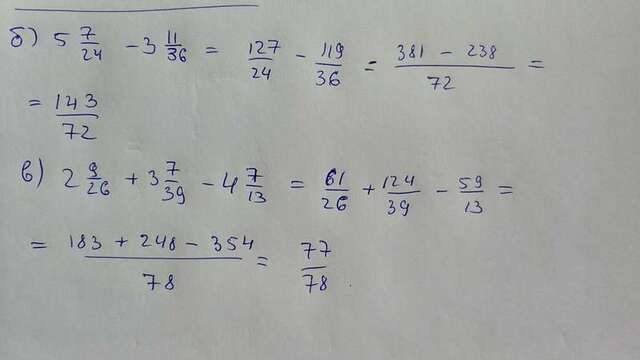 б) 5 7/24 - 3 11/36 = 127/24 - 119/36 = (381 - 238)/72 =
= 143/72
в) 2 9/26 + 3 7/39 - 4 7/13 = 61/26 + 124/39 - 59/13 =
= (183 + 248 - 354)/78 = 77/78.